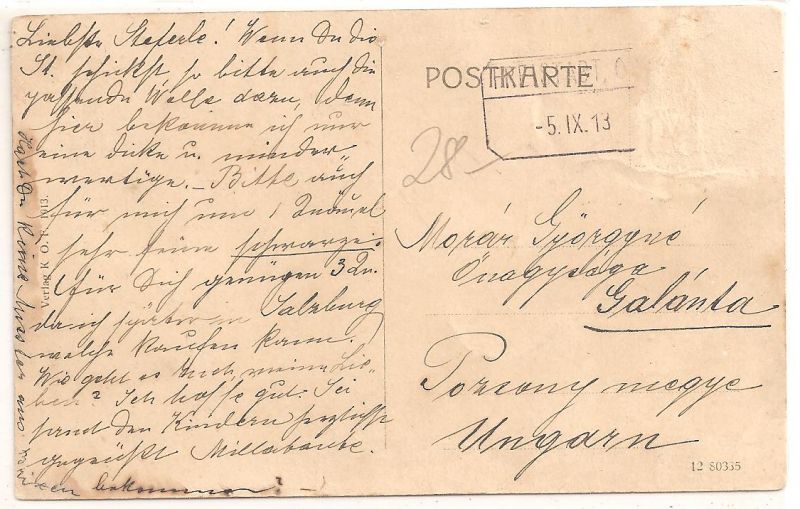 Liebste Steferle! Wenn Du die
St. schickst so bitte auch die
passende Wolle dazu, denn
hier bekomme ich nur
eine dicke u. minder
wertige. – Bitte auch
für mich um 1 Knäuel
sehr feine schwarze.
(für Dich genügen 3 Kn.
da ich später in Salzburg
welche kaufen kann.
Wie geht es Euch, meine Lie-
ben? Ich hoffe gut. Sei
samt den Kindern herzlichst
gegrüßt Millatante.
Hast Du keine Muster aus
bekommen?
Verlag K. O. F. 1913.
POSTKARTE
-5.IX.13
28-
Morár Györgyné
Őnagysága
Galánta
Pozsony megye
Ungarn
12 80335